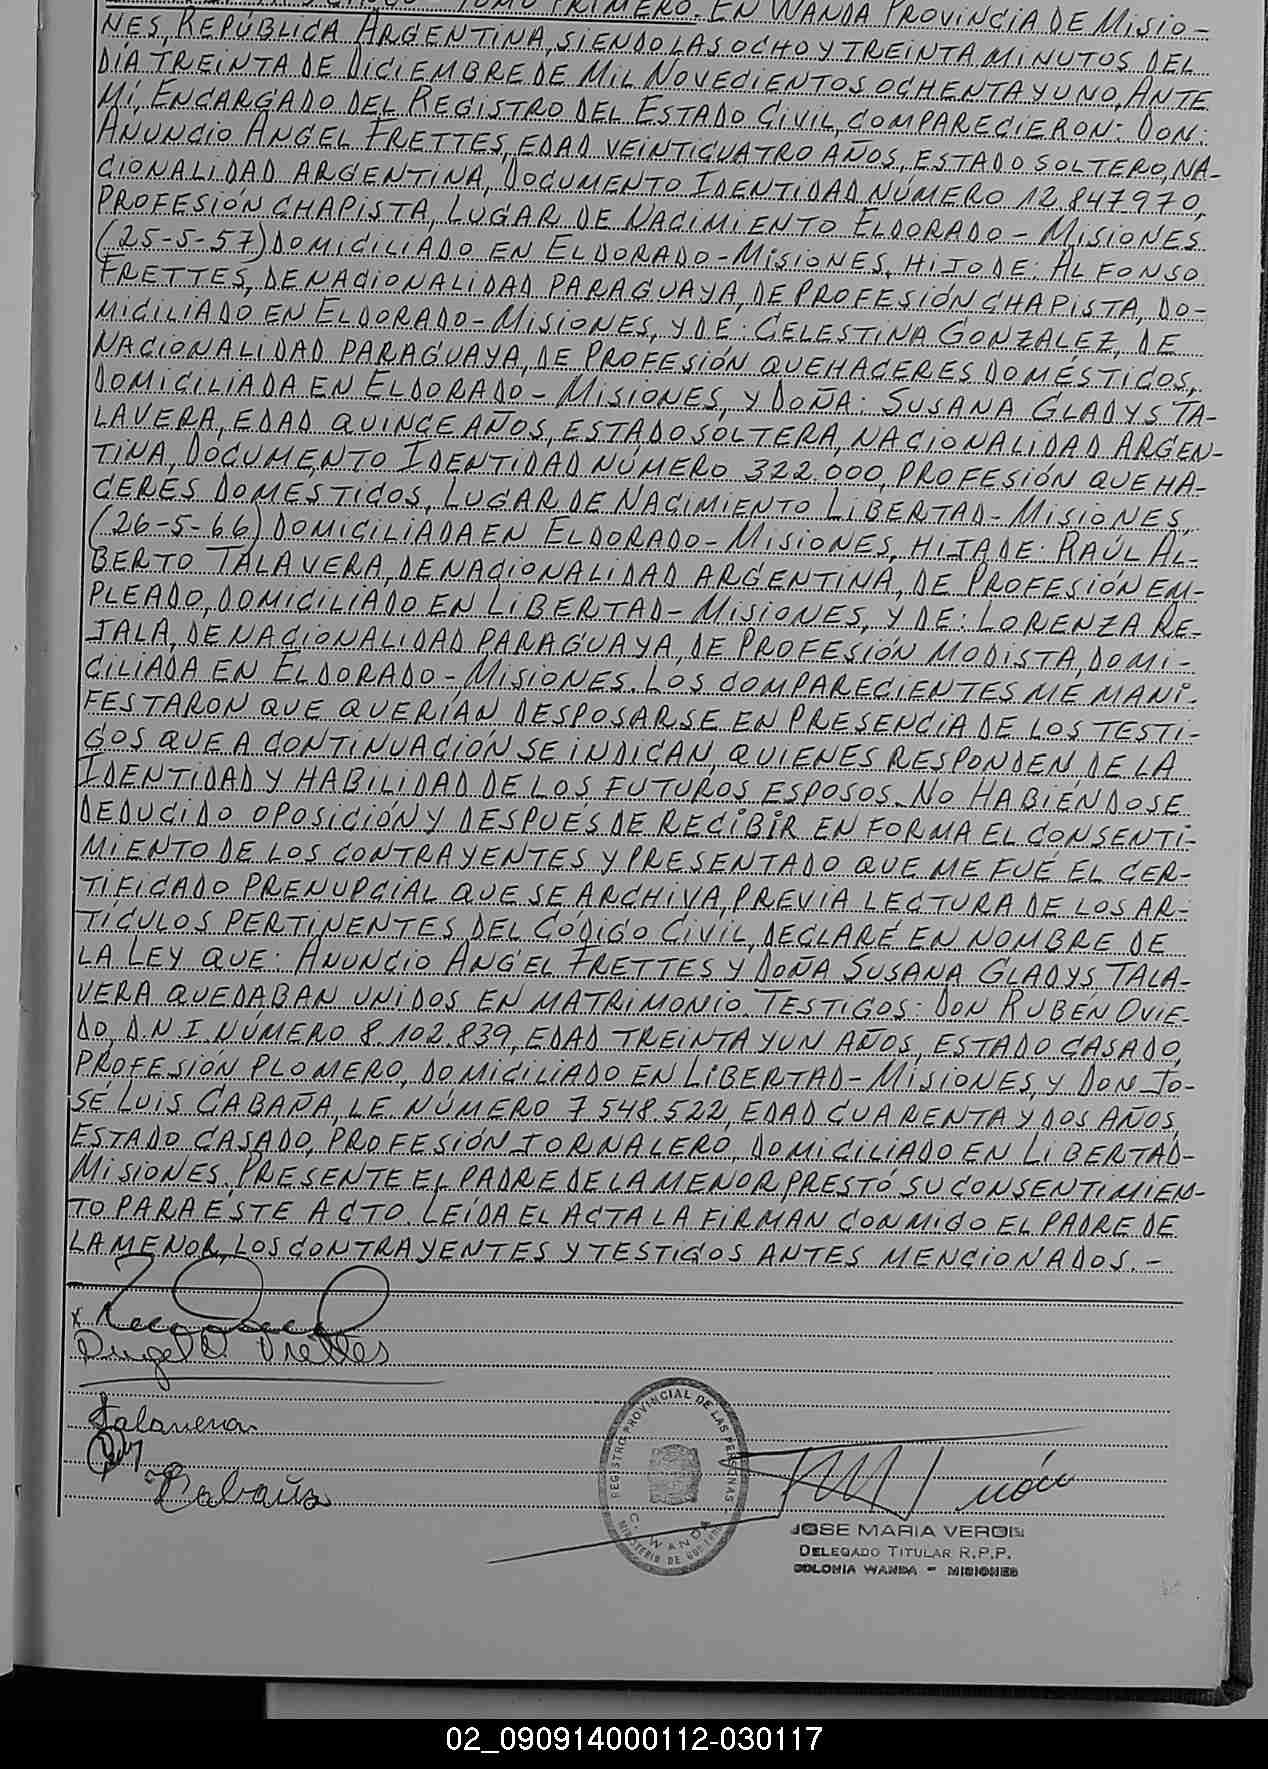 TOMO PRIMERO. EN WANDA PROVINCIA DE MISIO-
NES, REPÚBLICA ARGENTINA, SIENDO LAS OCHO Y TREINTA MINUTOS DEL
DÍA TREINTA DE DICIEMBRE DE MIL NOVECIENTOS OCHENTA Y UNO, ANTE
MÍ, ENCARGADO DEL REGISTRO DEL ESTADO CIVIL, COMPARECIERON: DON:
ANUNCIO ANGEL FRETTES, EDAD VEINTICUATRO AÑOS, ESTADO SOLTERO, NA-
CIONALIDAD ARGENTINA, DOCUMENTO IDENTIDAD NÚMERO 12.847.970,
PROFESIÓN CHAPISTA, LUGAR DE NACIMIENTO ELDORADO - MISIONES
(25-5-57) DOMICILIADO EN ELDORADO - MISIONES, HIJO DE: ALFONSO
FRETTES, DE NACIONALIDAD PARAGUAYA, DE PROFESIÓN CHAPISTA, DO-
MICILIADO EN ELDORADO - MISIONES, Y DE: CELESTINA GONZALEZ, DE
NACIONALIDAD PARAGUAYA, DE PROFESIÓN QUEHACERES DOMÉSTICOS,
DOMICILIADA EN ELDORADO - MISIONES, Y DOÑA: SUSANA GLADYS TA-
LAVERA, EDAD QUINCE AÑOS, ESTADO SOLTERA, NACIONALIDAD ARGEN-
TINA, DOCUMENTO IDENTIDAD NÚMERO 322.000, PROFESIÓN QUEHA-
CERES DOMÉSTICOS, LUGAR DE NACIMIENTO LIBERTAD - MISIONES,
(26-5-66) DOMICILIADA EN ELDORADO - MISIONES, HIJA DE: RAÚL AL-
BERTO TALAVERA, DE NACIONALIDAD ARGENTINA, DE PROFESIÓN EM-
PLEADO, DOMICILIADO EN LIBERTAD - MISIONES, Y DE: LORENZA RE-
JALA, DE NACIONALIDAD PARAGUAYA, DE PROFESIÓN MODISTA, DOMI-
CILIADA EN ELDORADO - MISIONES. LOS COMPARECIENTES ME MANI-
FESTARON QUE QUERÍAN DESPOSARSE EN PRESENCIA DE LOS TESTI-
GOS QUE A CONTINUACIÓN SE INDICAN, QUIENES RESPONDEN DE LA
IDENTIDAD Y HABILIDAD DE LOS FUTUROS ESPOSOS. NO HABIÉNDOSE
DEDUCIDO OPOSICIÓN Y DESPUÉS DE RECIBIR EN FORMA EL CONSENTI-
MIENTO DE LOS CONTRAYENTES Y PRESENTADO QUE ME FUÉ EL CER-
TIFICADO PRENUPCIAL QUE SE ARCHIVA, PREVIA LECTURA DE LOS AR-
TÍCULOS PERTINENTES DEL CÓDIGO CIVIL, DECLARÉ EN NOMBRE DE
LA LEY QUE: ANUNCIO ANGEL FRETTES Y DOÑA SUSANA GLADYS TALA-
VERA QUEDABAN UNIDOS EN MATRIMONIO. TESTIGOS: DON RUBÉN OVIE-
DO, D.N.I. NÚMERO 8.102.839, EDAD TREINTA Y UN AÑOS, ESTADO CASADO,
PROFESIÓN PLOMERO, DOMICILIADO EN LIBERTAD - MISIONES, Y DON JO-
SÉ LUIS CABAÑA, LE NÚMERO 7.548.522, EDAD CUARENTA Y DOS AÑOS,
ESTADO CASADO, PROFESIÓN JORNALERO, DOMICILIADO EN LIBERTAD -
MISIONES, PRESENTE EL PADRE DE LA MENOR, PRESTÓ SU CONSENTIMIEN-
TO PARA ESTE ACTO. LEÍDA EL ACTA LA FIRMAN CONMIGO EL PADRE DE
LA MENOR, LOS CONTRAYENTES Y TESTIGOS ANTES MENCIONADOS. -
Angel A. Frettes
Talavera
Cabaña
REGISTRO PROVINCIAL DE LAS PERSONAS
C. WANDA
MINISTERIO DE GOBIERNO
JOSE MARIA VERON
DELEGADO TITULAR R.P.P.
COLONIA WANDA - MISIONES
02_090914000112-030117